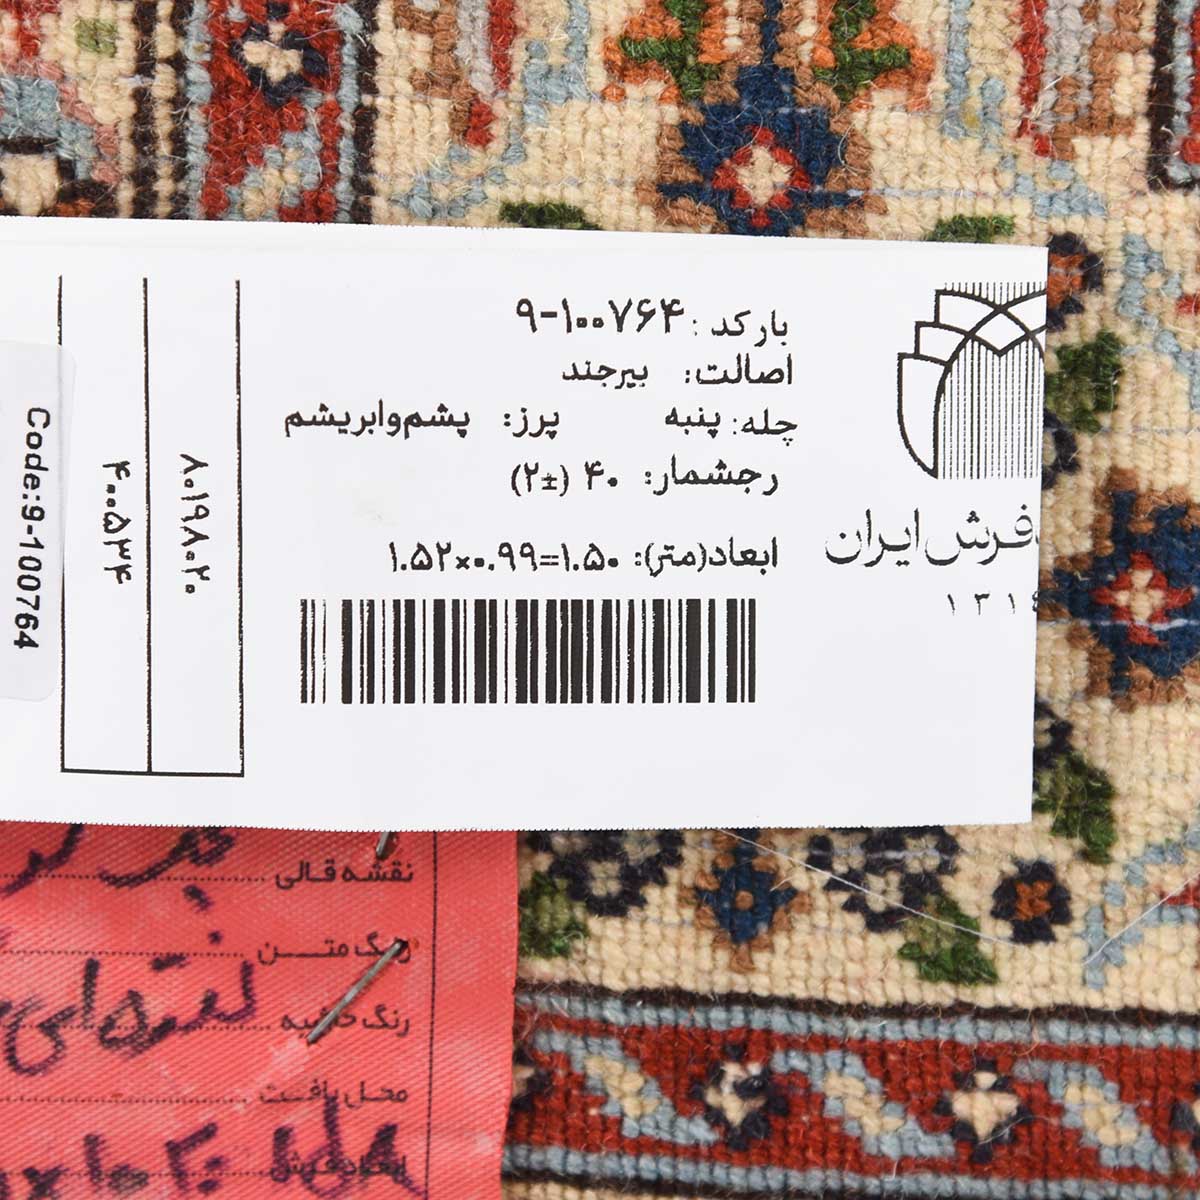 بارکد : ۹-۱۰۰۷۶۴
اصالت: بیرجند
چله: پنبه پرز: پشم‌وابریشم
رجشمار: ۴۰ (±۲)
ابعاد(متر): ۱.۵۲×۰.۹۹=۱.۵۰
فرش ایران
۸۰۱۹۸۰۲۰
۴۰۰۵۳۴
Code:9-100764
نقشه قالی
رنگ متن
رنگ حاشیه
محل بافت
ابعاد فرش